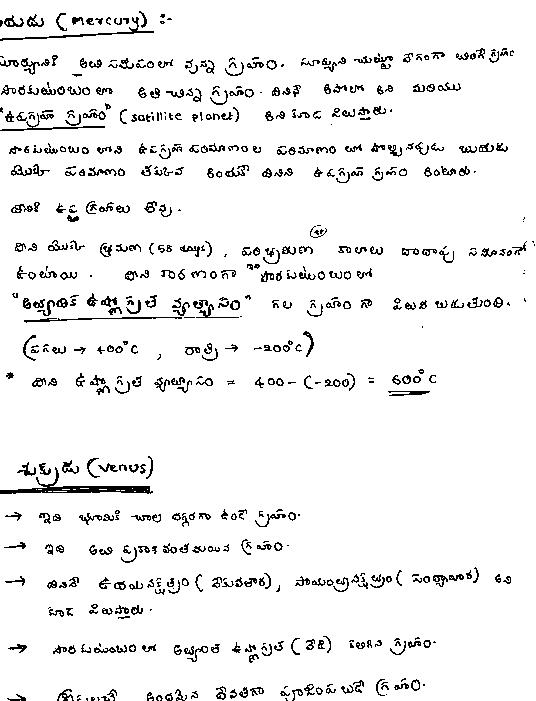 బుధుడు (Mercury) :-
సూర్యునికి అతి సమీపంలో వున్న గ్రహం. సూర్యుని చుట్టూ వేగంగా తిరిగే గ్రహం
సౌరకుటుంబంలో అతి చిన్న గ్రహం. దీనినే అపోలో అని మరియు
"ఉపగ్రహ గ్రహం" (satillite planet) అని కూడ పిలుస్తారు.
సౌరకుటుంబం లోని ఉపగ్రహ పరిమాణంల పరిమాణం లో పోల్చినప్పుడు బుధుడు
యొక్క పరిమాణం తక్కువ అందుకే దీనిని ఉపగ్రహ గ్రహం అంటారు.
దీనికి ఉప గ్రహాలు లేవు.
దీని యొక్క భ్రమణ (58 days), పరిభ్రమణ కాలాలు దాదాపు సమానంగా
ఉంటాయి. దీని కారణంగా సౌరకుటుంబంలో
"అత్యధిక ఉష్ణోగ్రత వ్యత్యాసం" గల గ్రహం గా పిలువ బడుతుంది.
(పగలు → 400°C , రాత్రి → -200°C)
* దీని ఉష్ణోగ్రత వ్యత్యాసం = 400-(-200) = 600°C
శుక్రుడు (Venus)
→ ఇది భూమికి చాల దగ్గరగా ఉండే గ్రహం.
→ ఇది అతి ప్రకాశవంతమయిన గ్రహం.
→ దీనినే ఉదయనక్షత్రం (వేకువతార), సాయంత్రనక్షత్రం (సంధ్యాతార) అని
కూడ పిలుస్తారు.
→ సౌరకుటుంబం లో అత్యంత ఉష్ణోగ్రత (వేడి) కలిగిన గ్రహం.
→ అందమైన దేవతగా పూజింపబడే గ్రహం.